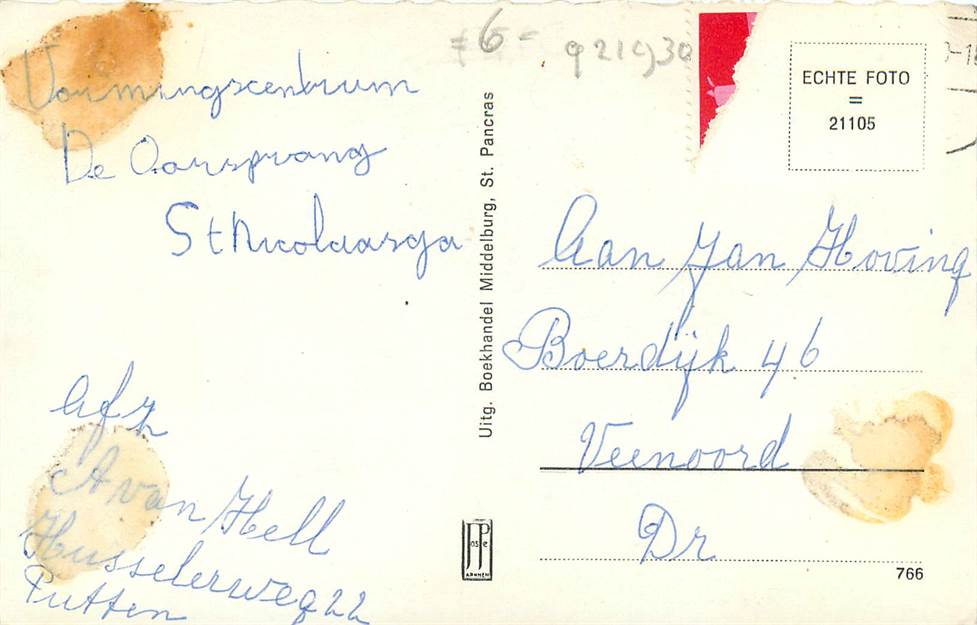 = 6 -
921930
Vormingscentrum
De Oorsprong
St Nicolaasga
Afz
A van Hell
Husselerweg 22
Putten
Uitg. Boekhandel Middelburg, St. Pancras
JosPe
ARNHEM
ECHTE FOTO
=
21105
Aan Jan Hoving
Boerdijk 46
Veenoord
Dr
766